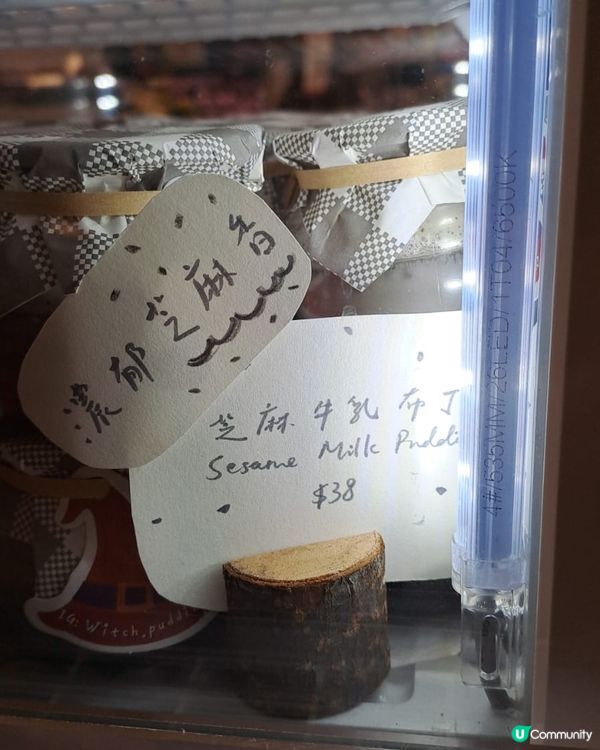 濃郁芝麻香
芝麻牛乳布丁
Sesame Milk Puddi
$38
IG: Witch.puddi
4#/535MM/26LED/1T04/6500K
U Community